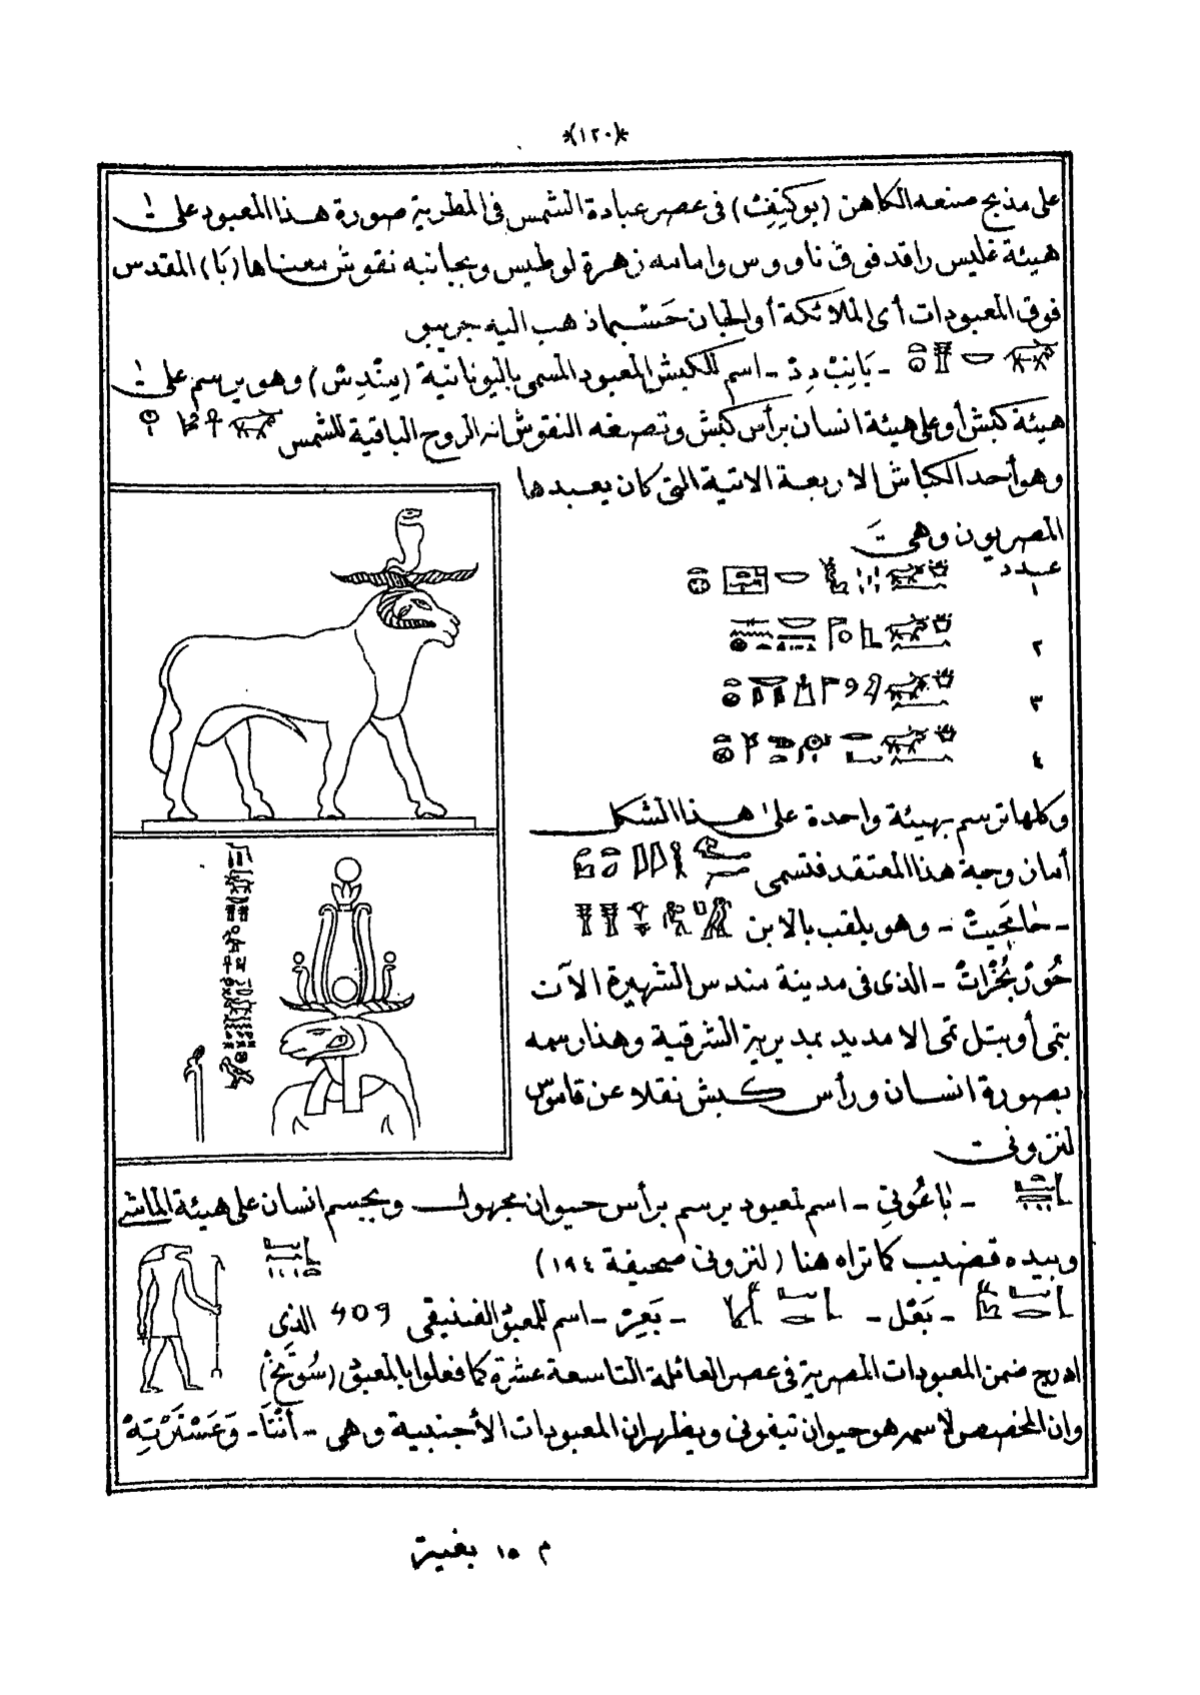 *(١٢٠)*
على مذبح صنعه الكاهن (بوكيتفت) فى عصر عبادة الشمس فى المطرية صورة هذا المعبود على
هيئة غليس راقد فوق ناووس وامامه زهرة لوطيس وبجانبه نقوش معناها (بَا) المقدس
فوق المعبودات أى الملائكة أوالجان حَسْبما ذهب اليه جريبو
- بَانِبْ دِدْ - اسم للكبش المعبود المسمى باليونانية (مِنْدِس) وهو يرسم على
هيئة كبش أوعلى هيئة انسان برأس كبش وتصفه النقوش انه الروح الباقية للشمس
وهو أحد الكباش الاربعة الاتية التى كان يعبدها
المصريون وهى
عدد
١
٢
٣
٤
وكلها ترسم بهيئة واحدة على هذا الشكل
أمازوجة هذا المعتقد فتسمى
- حَامَحِيتْ - وهو يلقب بالابن
حُورْبُخْرَاتْ - الذى فى مدينة مندس الشهيرة الآن
بتمى أو بتل تمى الامديد بمديرية الشرقية وهذا رسمه
بصورة انسان ورأس كبش نقلا عن قاموس
لنزونى
- بَاعُونِى - اسم لمعبود يرسم برأس حيوان مجهول وبجسم انسان على هيئة الماشى
وبيده قضيب كما تراه هنا (لنزونى صحيفة ١٩٤)
- بَعْل - - بَعِرْ - اسم للمعبود الفنيقى الذى
ادرج ضمن المعبودات المصرية فى عصر العائلة التاسعة عشرة كما فعلوا بالمعبود (سُوتِخْ)
وان المخصص لاسمه هو حيوان تيفونى ويظهر ان المعبودات الأجنبية وهى - أَنْتَا - وَعَسْتَرْتِهْ
م ١٥ بغية